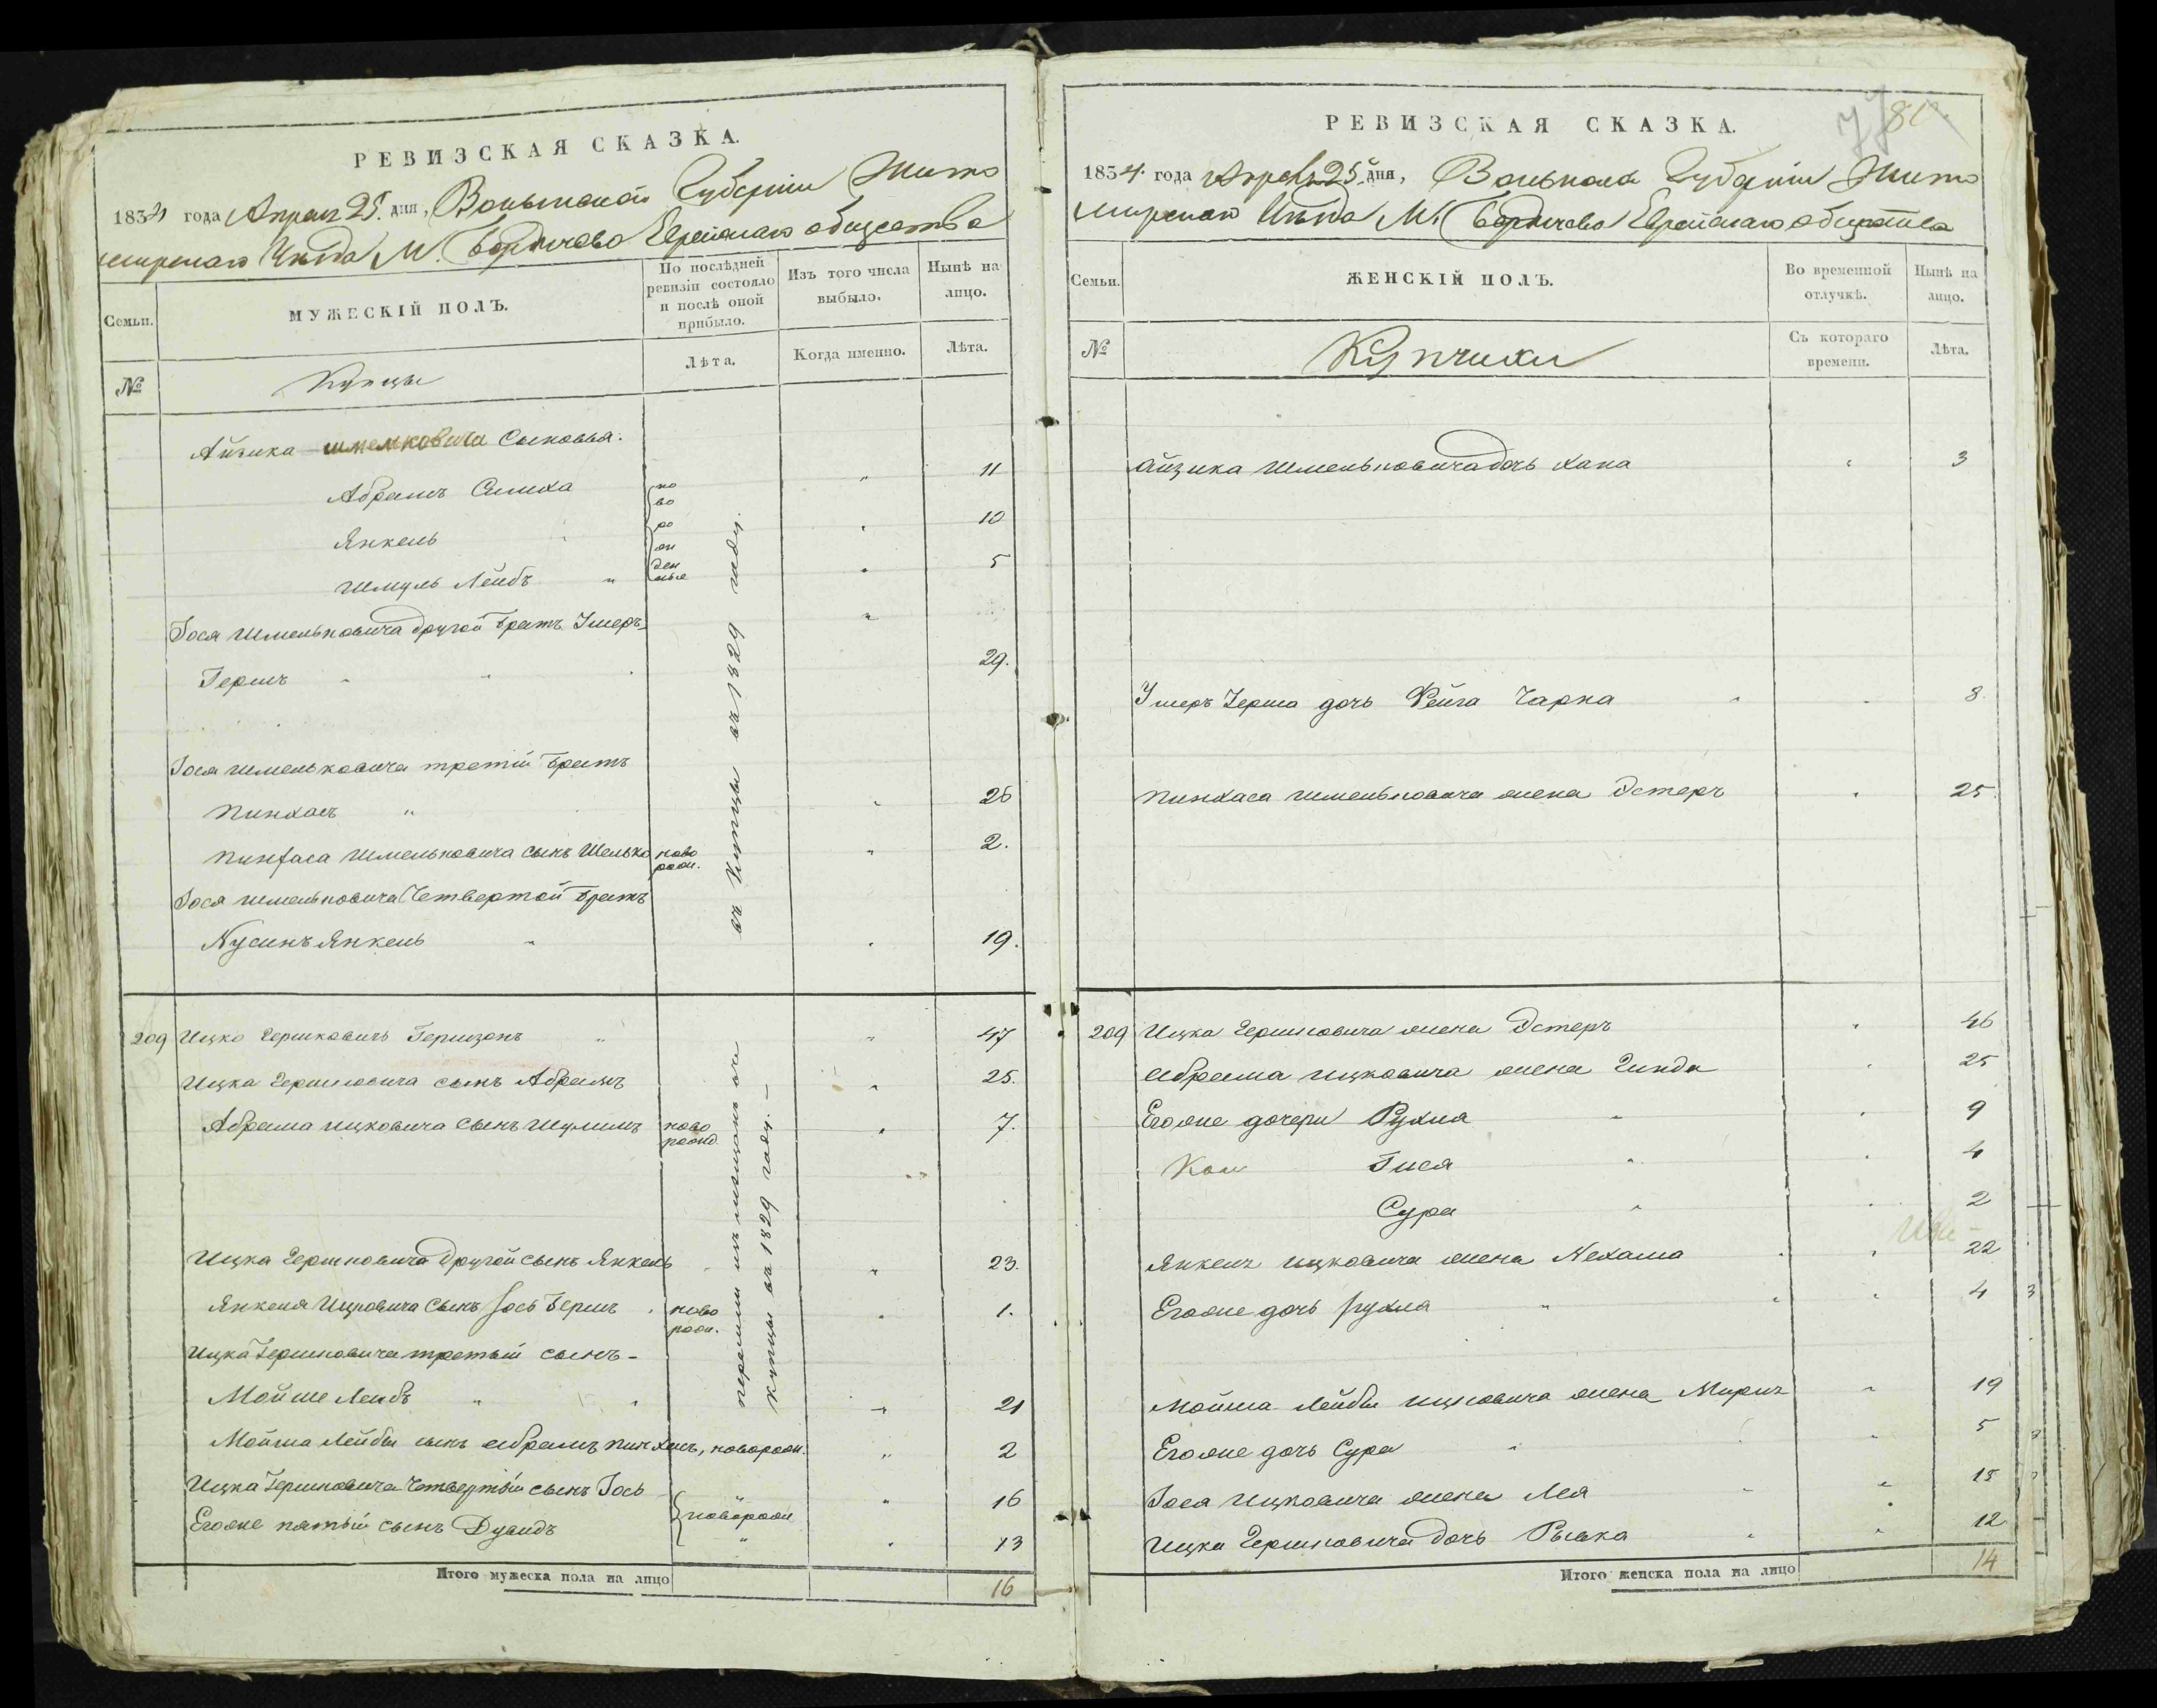 РЕВИЗСКАЯ СКАЗКА.
1834 года Апреля 25. дня, Волынской Губернии Жито
мирскаго Уѣзда М. Бердичева Еврейскаго общества
Семьи.
МУЖЕСКІЙ ПОЛЪ.
По послѣдней ревизіи состояло и послѣ оной прибыло.
Изъ того числа выбыло.
Нынѣ на лицо.
№
Купцы
Лѣта.
Когда именно.
Лѣта.
Айзика Шмельковича Сыновья.
Абрамъ Симха 11
Янкель 10
Шмуль Лейбъ 5
ново рожденные
Іося Шмельковича другой братъ
Гершъ 29.
Іося Шмельковича третій братъ
Пинхасъ 26
Пинхаса Шмельковича сынъ Шмелько ново рож. 2.
Іося Шмельковича Четвертой братъ
Нусинъ Янкель 19.
въ Купцы въ 1829 году.
209 Ицко Гершковичъ Гершзонъ 47
Ицка Гершковича сынъ Абрамъ 25.
Абрама Ицковича сынъ Шулимъ ново рожд. 7.
Ицка Гершковича другой сынъ Янкель 23.
Янкеля Ицковича сынъ Іось Гершъ ново рож. 1.
Ицка Гершковича третьій сынъ -
Мойше Лейбъ 21
Мойша Лейбы сынъ Абрамъ Пинхасъ, новорож. 2
Ицка Гершковича четвертый сынъ Іось 16
Егоже пятый сынъ Дувидъ 13
новорож
купцы въ 1829 году. -
Итого мужеска пола на лицо 16
РЕВИЗСКАЯ СКАЗКА.
1834 года Апреля 25 дня, Волынской Губерніи Жито
мирскаго Уѣзда М. Бердичева Еврейскаго общества
Семьи.
ЖЕНСКІЙ ПОЛЪ.
Во временной отлучкѣ.
Нынѣ на лицо.
№
Купчихи
Съ котораго времени.
Лѣта.
Айзика Шмельковича дочь Хана 3
Герша дочь Фейга Чарна 8.
Пинхаса Шмельковича жена Эстеръ 25.
209 Ицка Гершковича жена Эстеръ 46
Абрама Ицковича жена Гинда 25
Егоже дочери Рухля 9
Гися 4
Сура 2
Янкеля Ицковича жена Нехама 22
Егоже дочь Рухля 4
Мойша Лейбы Ицковича жена Миріъ 19
Егоже дочь Сура 5
Іося Ицковича жена Лея 15
Ицка Гершковича дочь Рывка 12
Итого женска пола на лицо 14